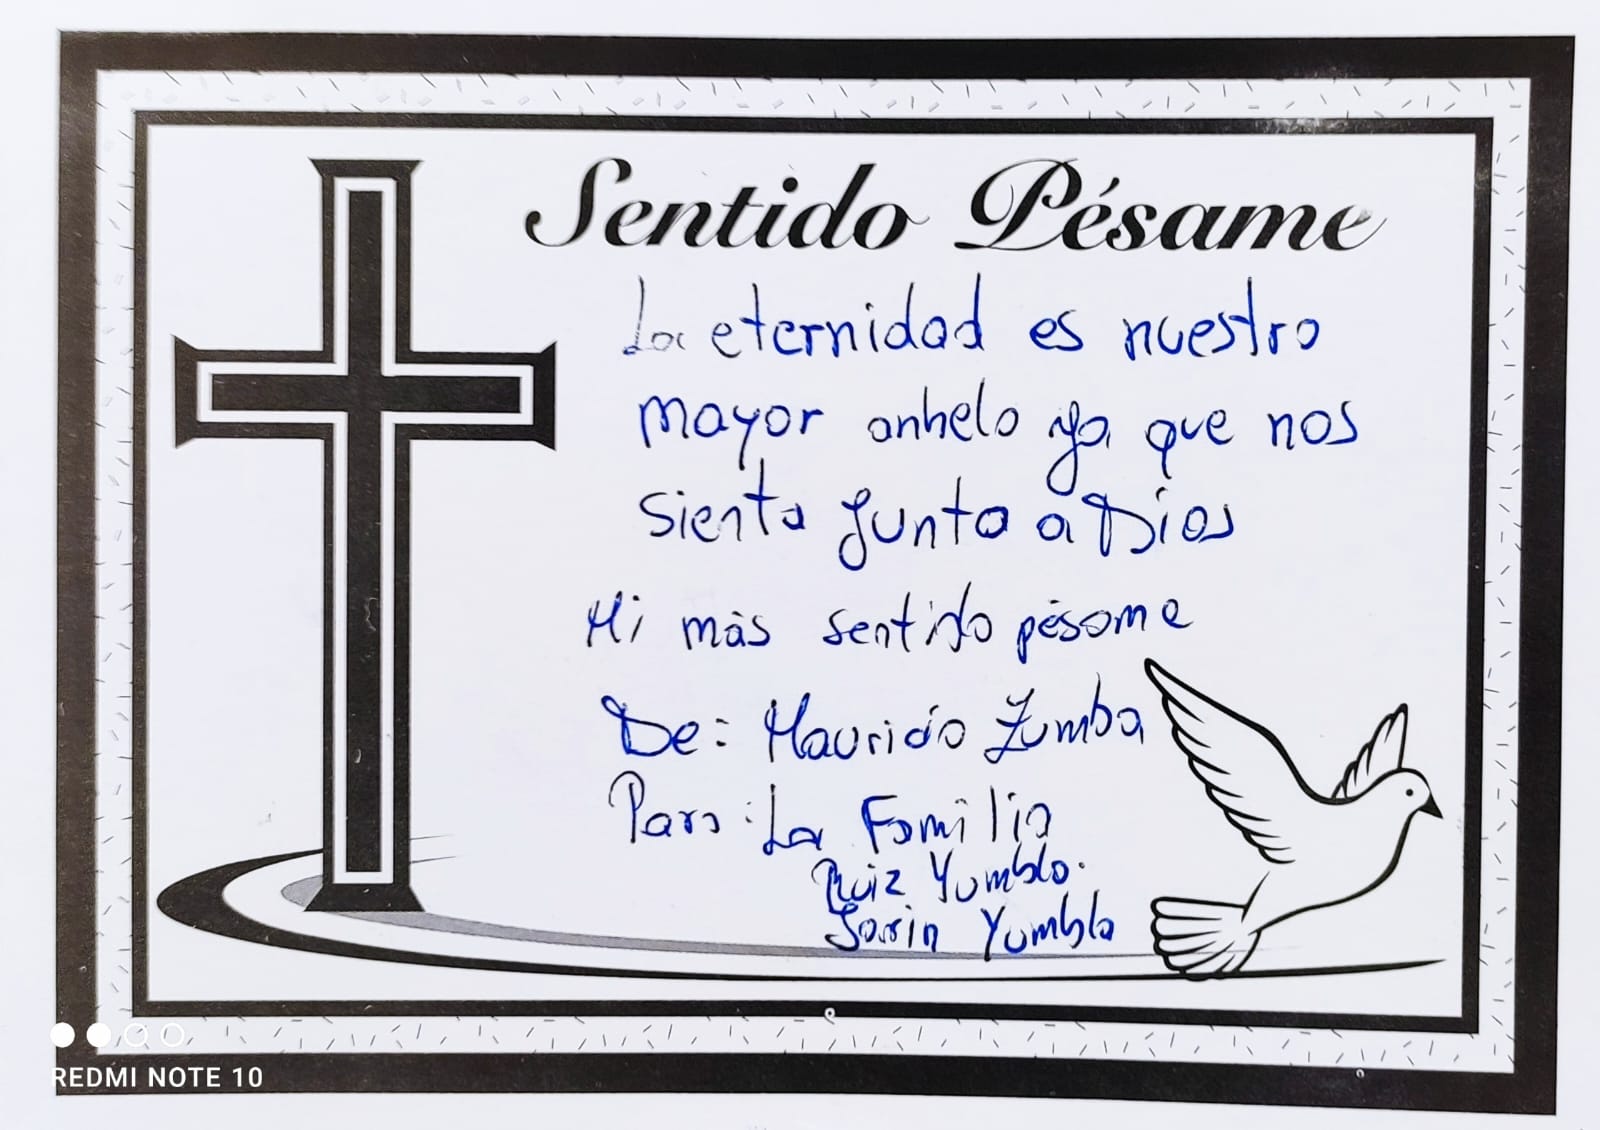 Sentido Pésame
La eternidad es nuestro
mayor anhelo ya que nos
sienta junto a Dios
Mi más sentido pésame
De: Mauricio Zumba
Para: La Familia
Ruiz Yumbla.
Yumbla
REDMI NOTE 10